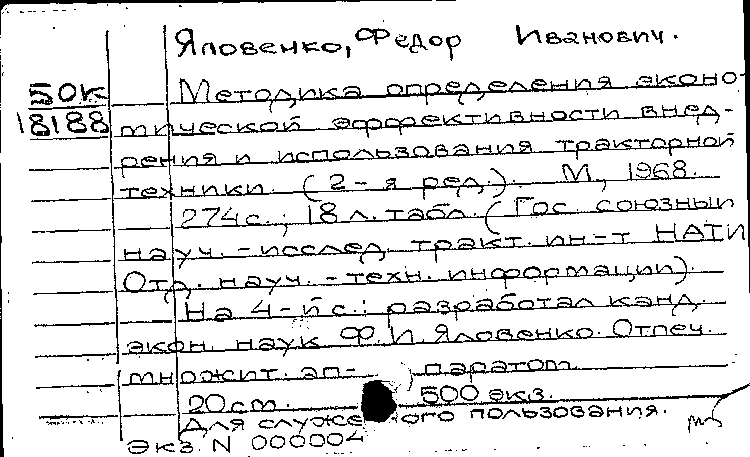 Яловенко, Федор Иванович.
50к Методика определения эконо-
18188 мической эффективности внед-
рения и использования тракторной
техники. (2-я ред.). М., 1968.
274с.; 18 л. табл. (Гос. союзный
науч.-исслед. тракт. ин-т НАТИ
Отд. науч.-техн. информации).
На 4-й с.: разработал канд.
экон. наук Ф.И. Яловенко. Отпеч.
множит. ап- паратом.
20см. 500 экз.
Для служебного пользования.
Экз. N 000004